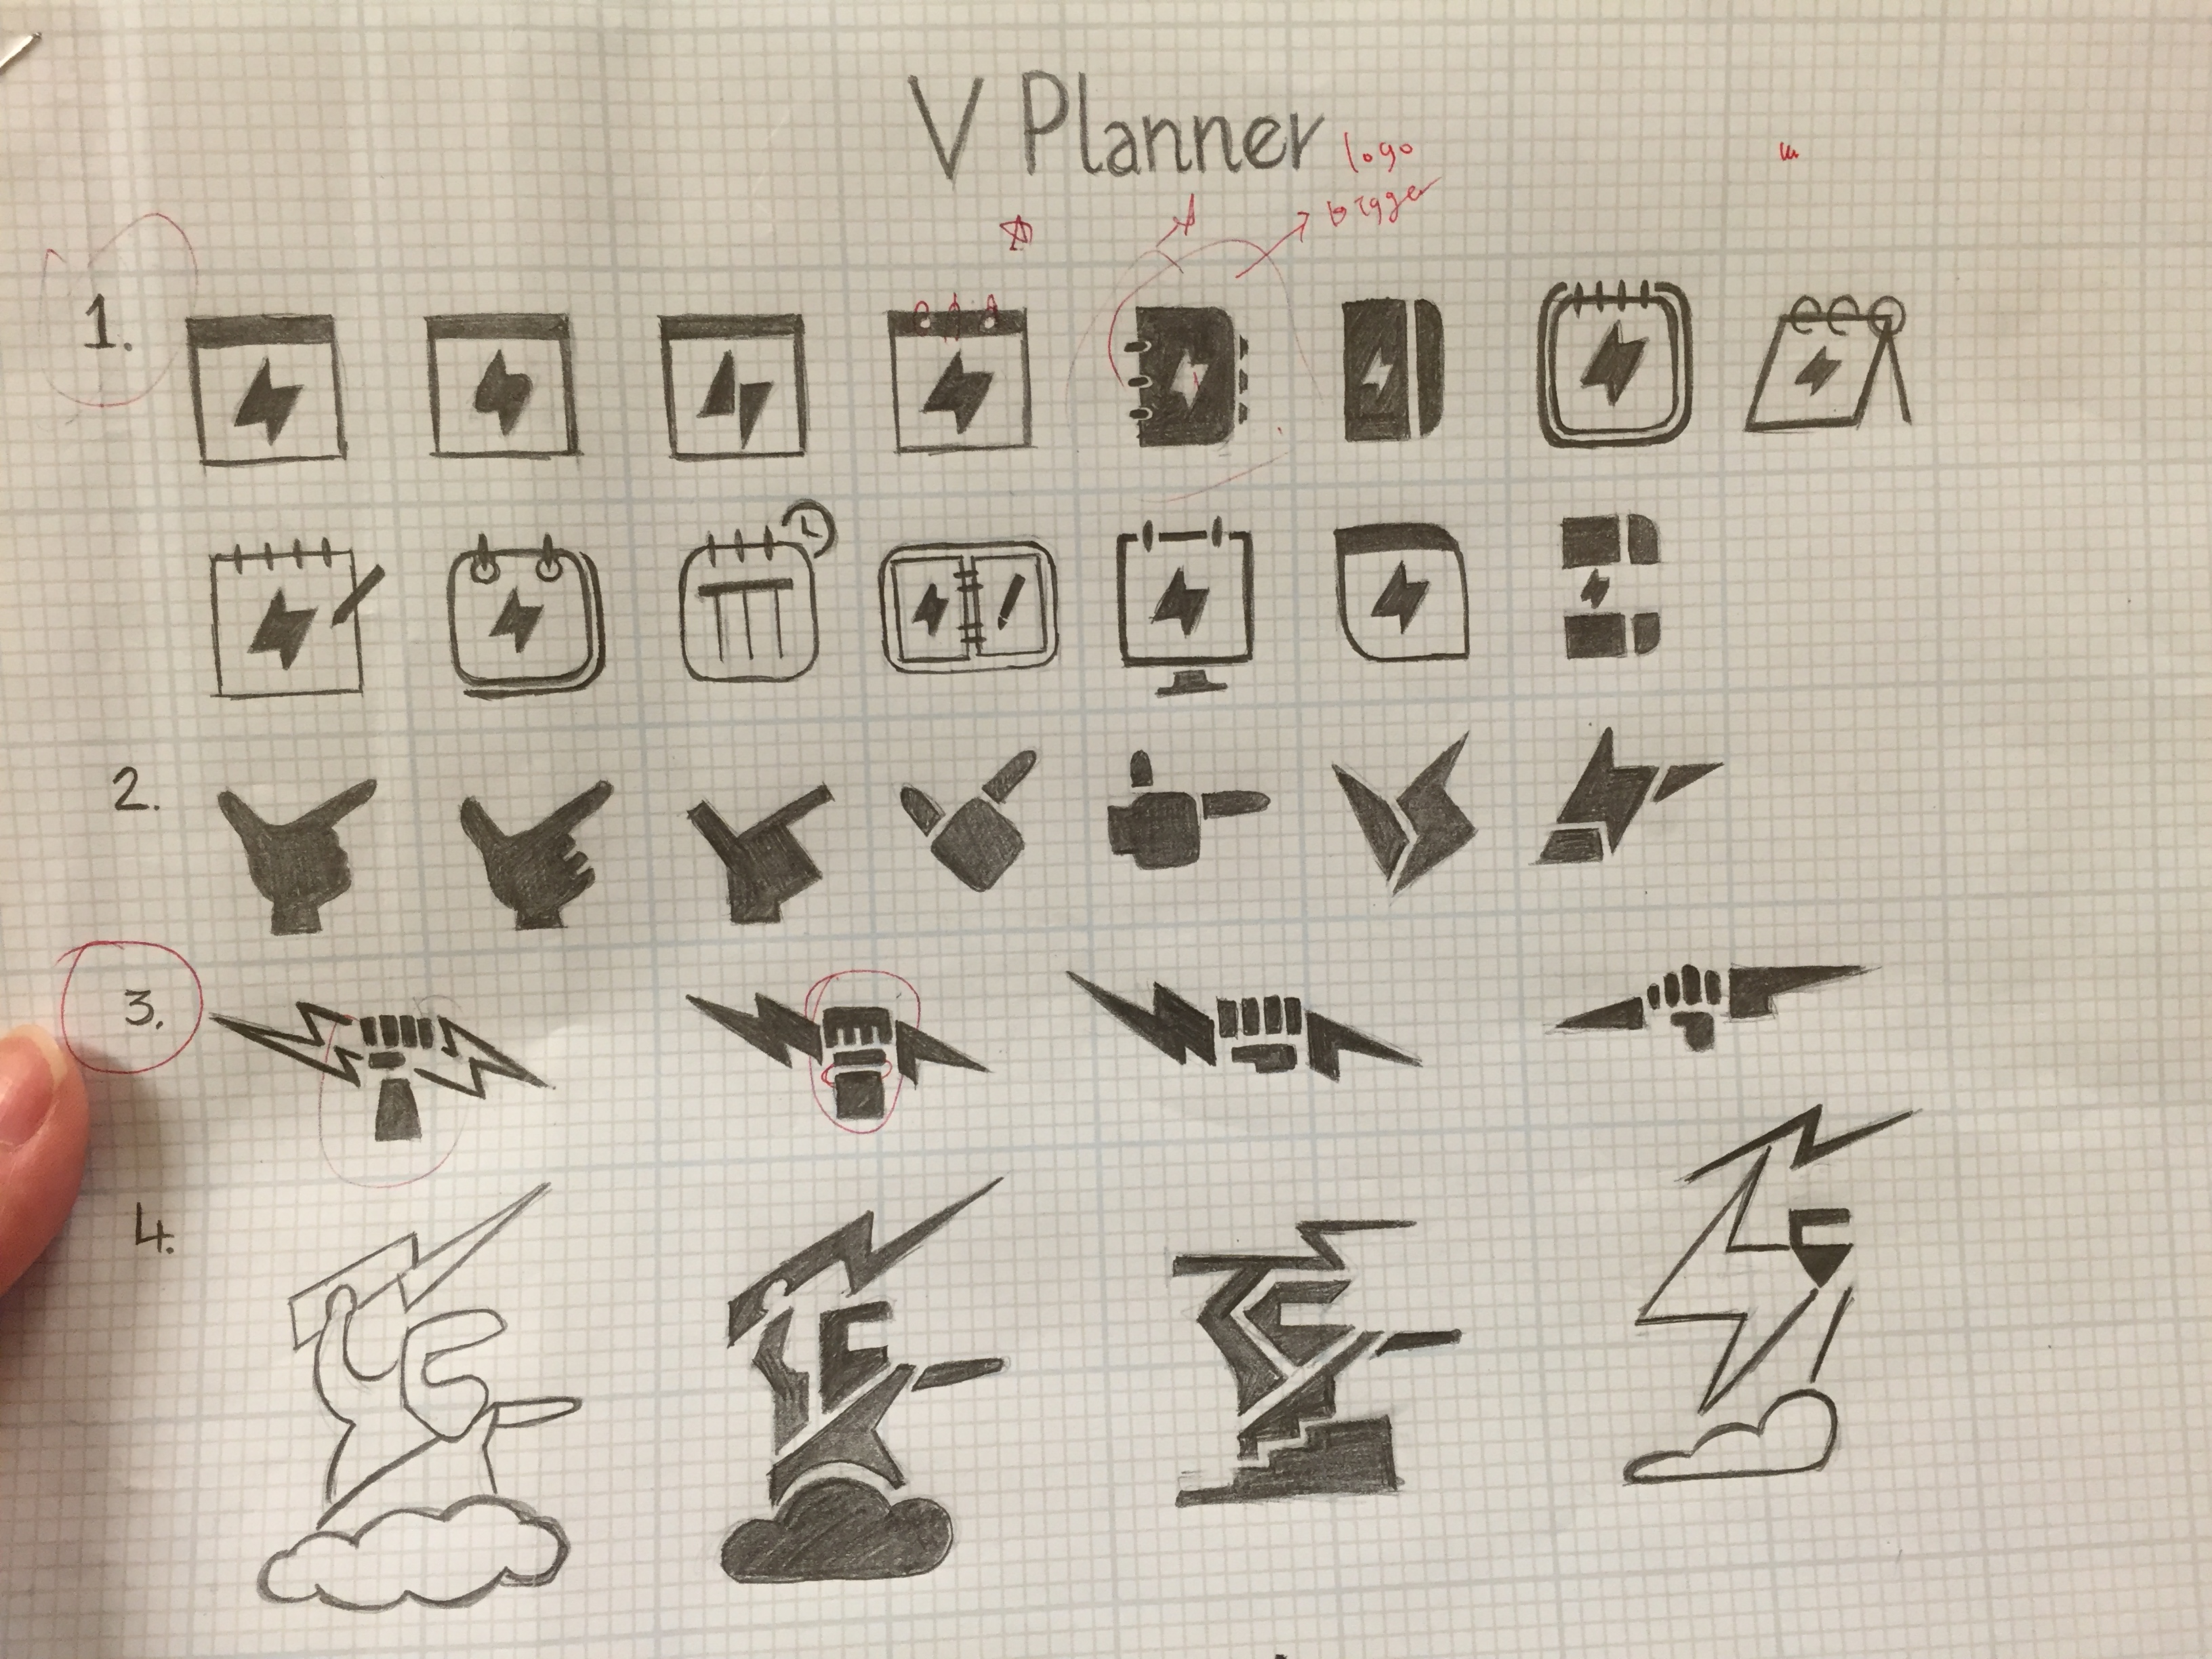 V Planner
logo
bigger
1.
2.
3.
4.